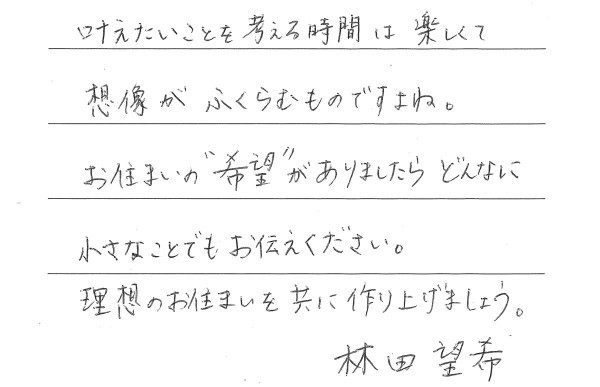 叶えたいことを考える時間は楽しくて
想像がふくらむものですよね。
お住まいの"希望"がありましたらどんなに
小さなことでもお伝えください。
理想のお住まいを共に作り上げましょう。
林田望希